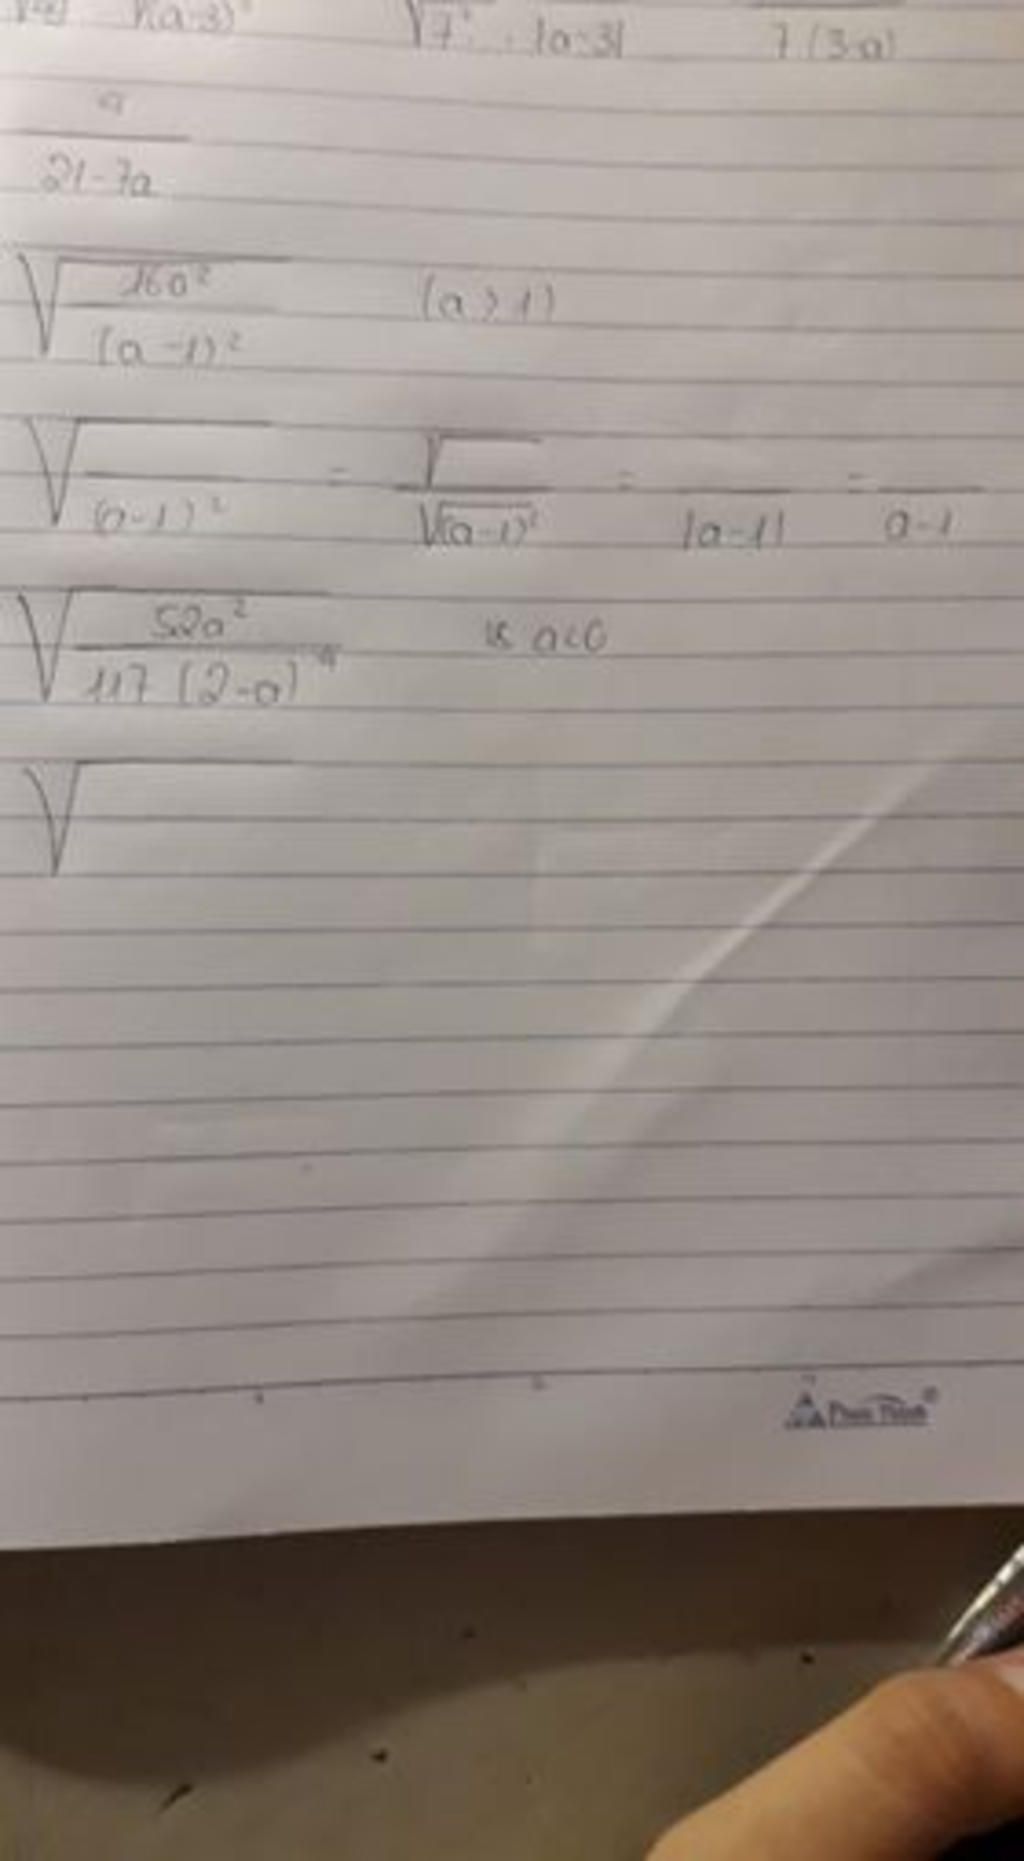 √(a-3)² √7² · |a-3| 7(3-a)
a
21-7a
√ 16a² / (a-1)² (a>1)
√ / (a-1)² = √ / √(a-1)² = / |a-1| = / a-1
√ 52a² / 117 (2-a)⁴ a<0
√